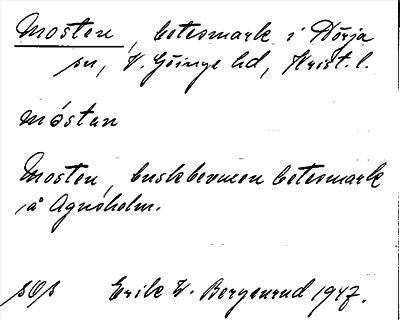 Mosten, betesmark i Dörja
sn, V. Göinge hd, Krist. l.
móstan
Mosten, buskbevuxen betesmark
å Agnsholm.
sOs Erik W. Bergenrud 1947.